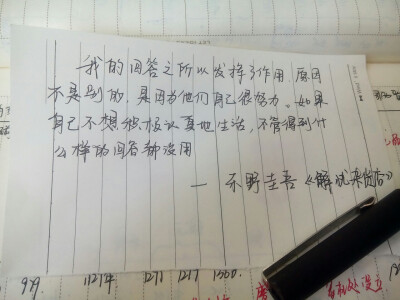 我的回答之所以发挥了作用 原因
不是别的,是因为他们自己很努力。如果
自己不想积极认真地生活,不管得到什
么样的回答都没用
— 东野圭吾《解忧杂货店》
979. 11214 1271 1217 1550.